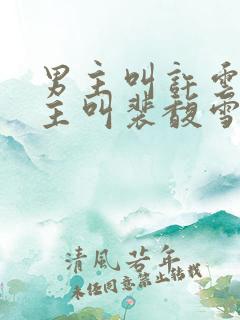 男主叫許雲
主叫裴馥雪
清風若年
未经同意禁止转载